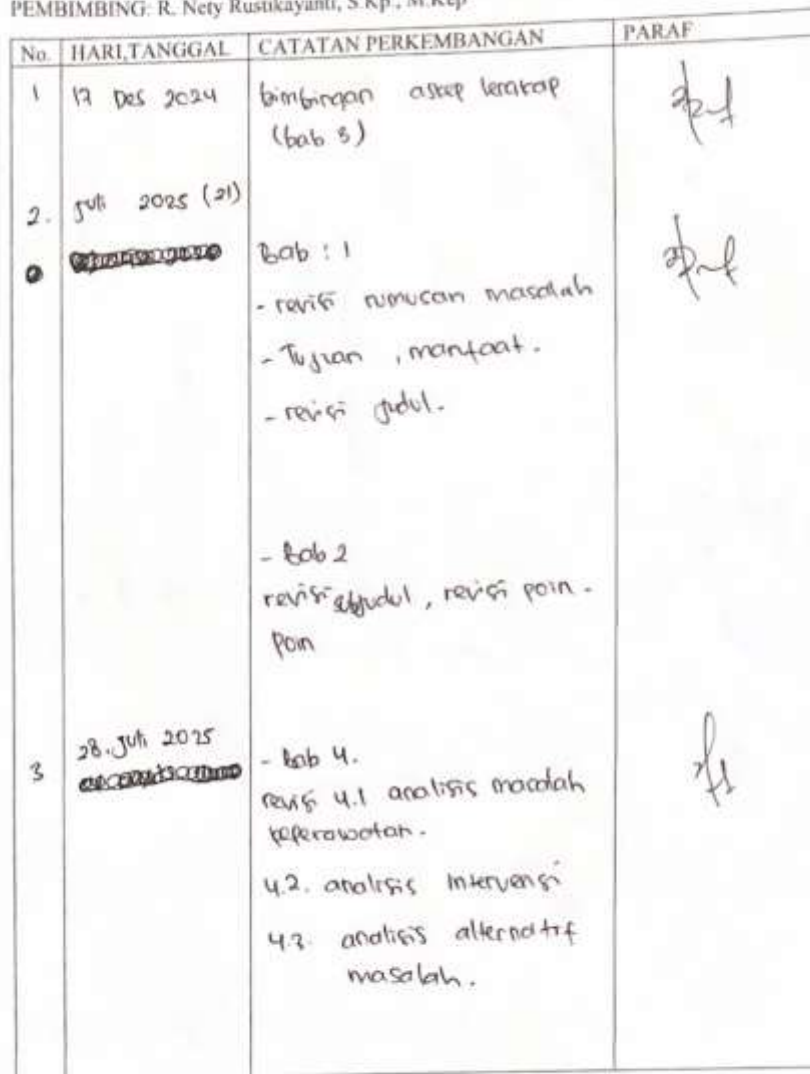 PEMBIMBING: R. Nety Rustikayanti, S.Kp., M.Kep
No. HARI,TANGGAL CATATAN PERKEMBANGAN PARAF
1 17 Des 2024 bimbingan askep
(bab 3)
2. Juli 2025 (21)
Bab : 1
- revisi rumusan masalah
- Tujuan , manfaat.
- revisi judul.
- Bab 2
revisi subjudul, revisi poin -
poin
3 28. Juli 2025 - Bab 4.
revisi 4.1 analisis masalah
keperawatan.
4.2. analisis intervensi
4.3. analisis alternatif
masalah.